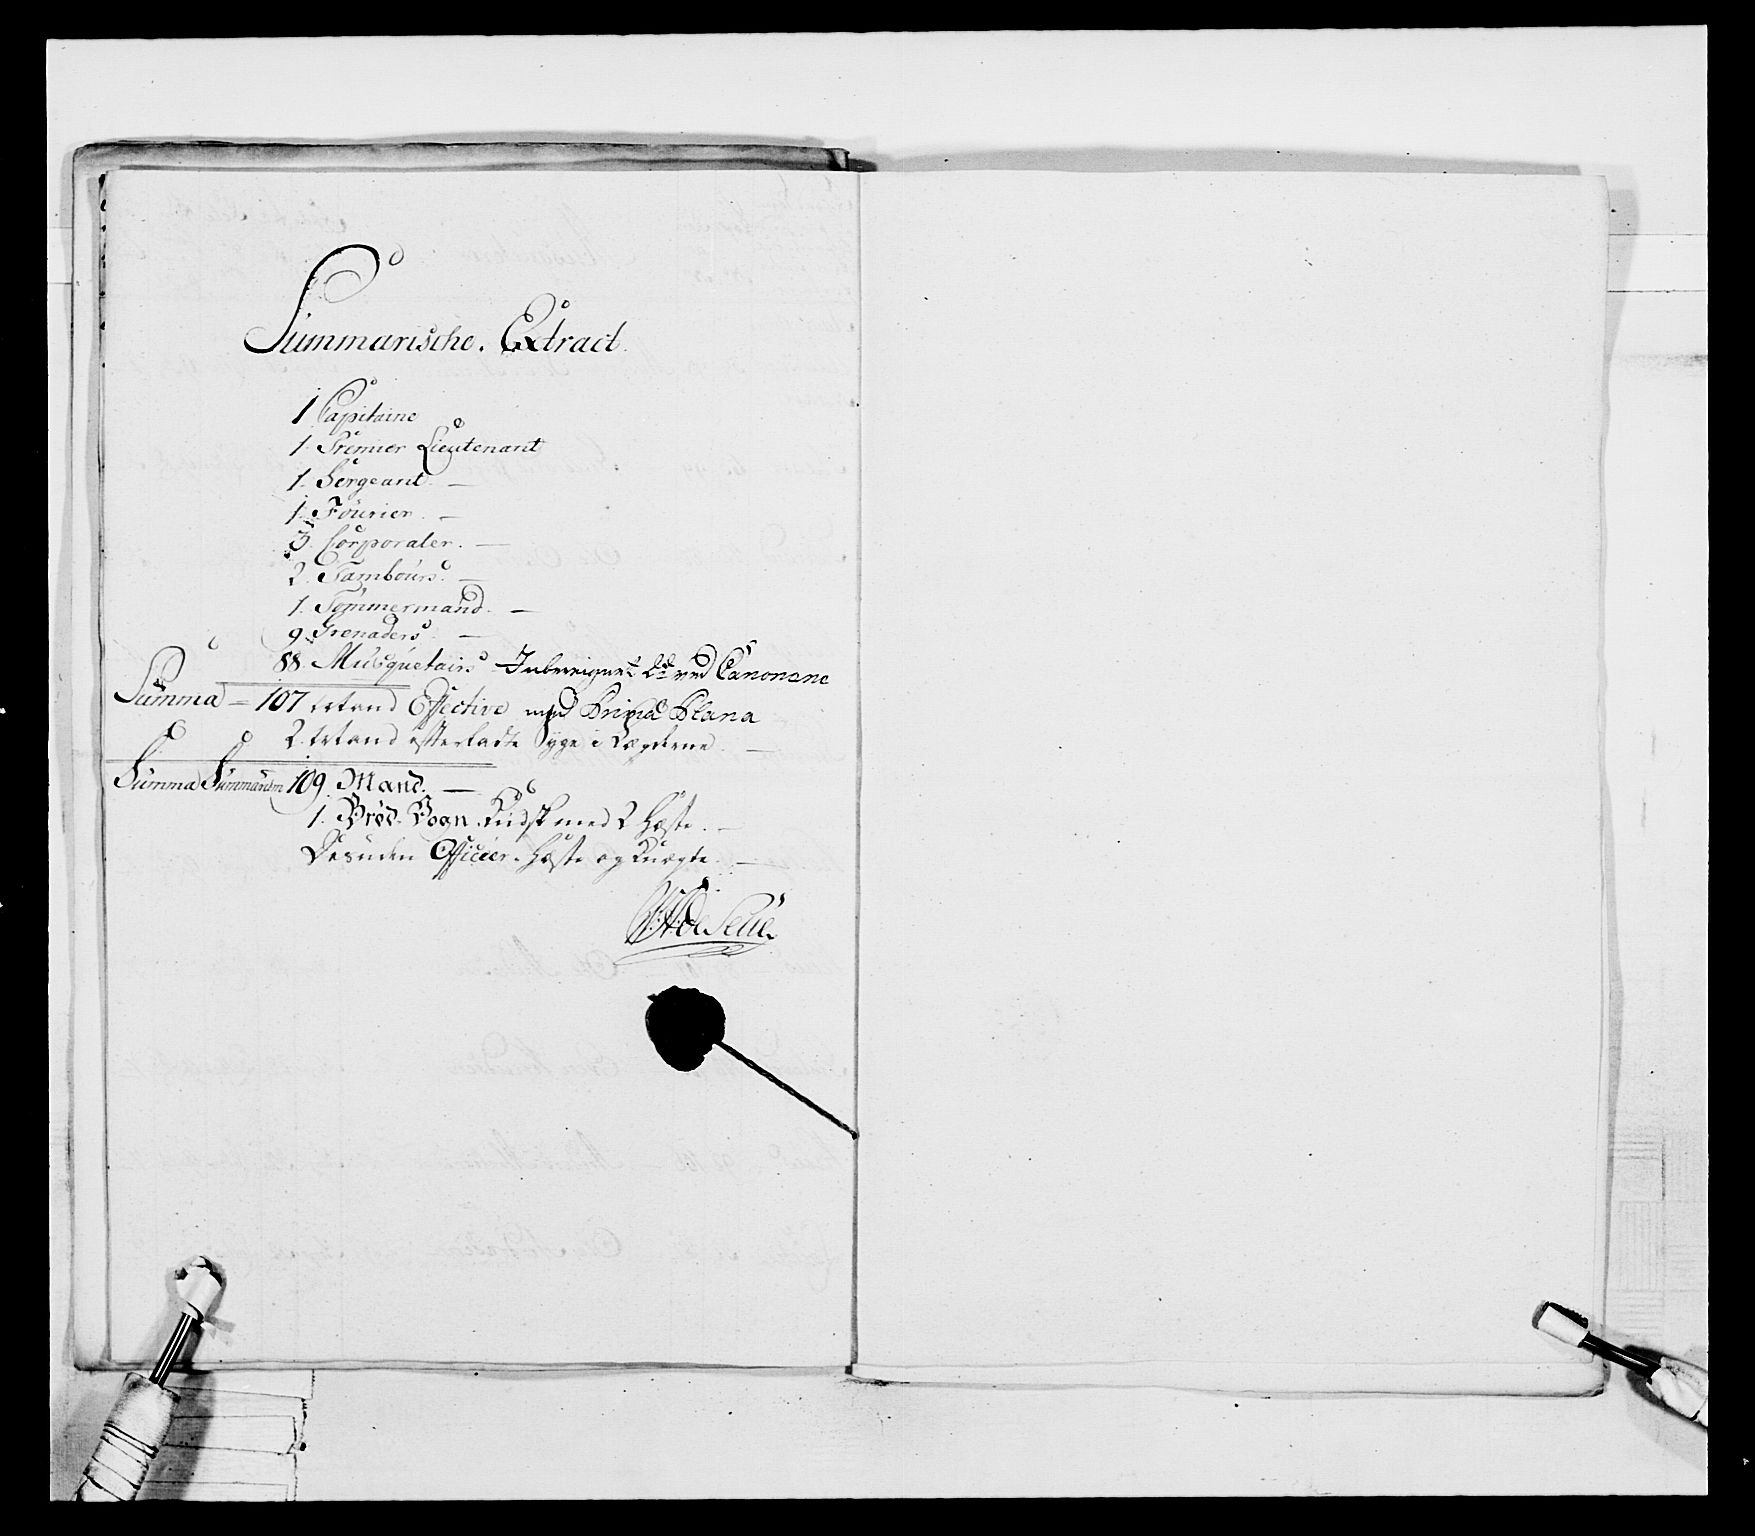 Summarische. Extract.
1 Capitaine
1. Premier Lieutenant
1. Sergeant. —
1. Fourier. —
3. Corporaler. —
2. Tambours. —
1. Tømmermand. —
9. Grenaders. —
88. Musquetairs Inbereignet de ved Canonene
Summa = 107 Mand Effective med Prima Plana
2. Mand efterladte Syge i Lægderne. —
Summa Summarum 109. Mand. —
1. Brød-Vogn. Kudsk med 2 Heste. —
Desuden Officier-Heste og Knægte. —
de Seue